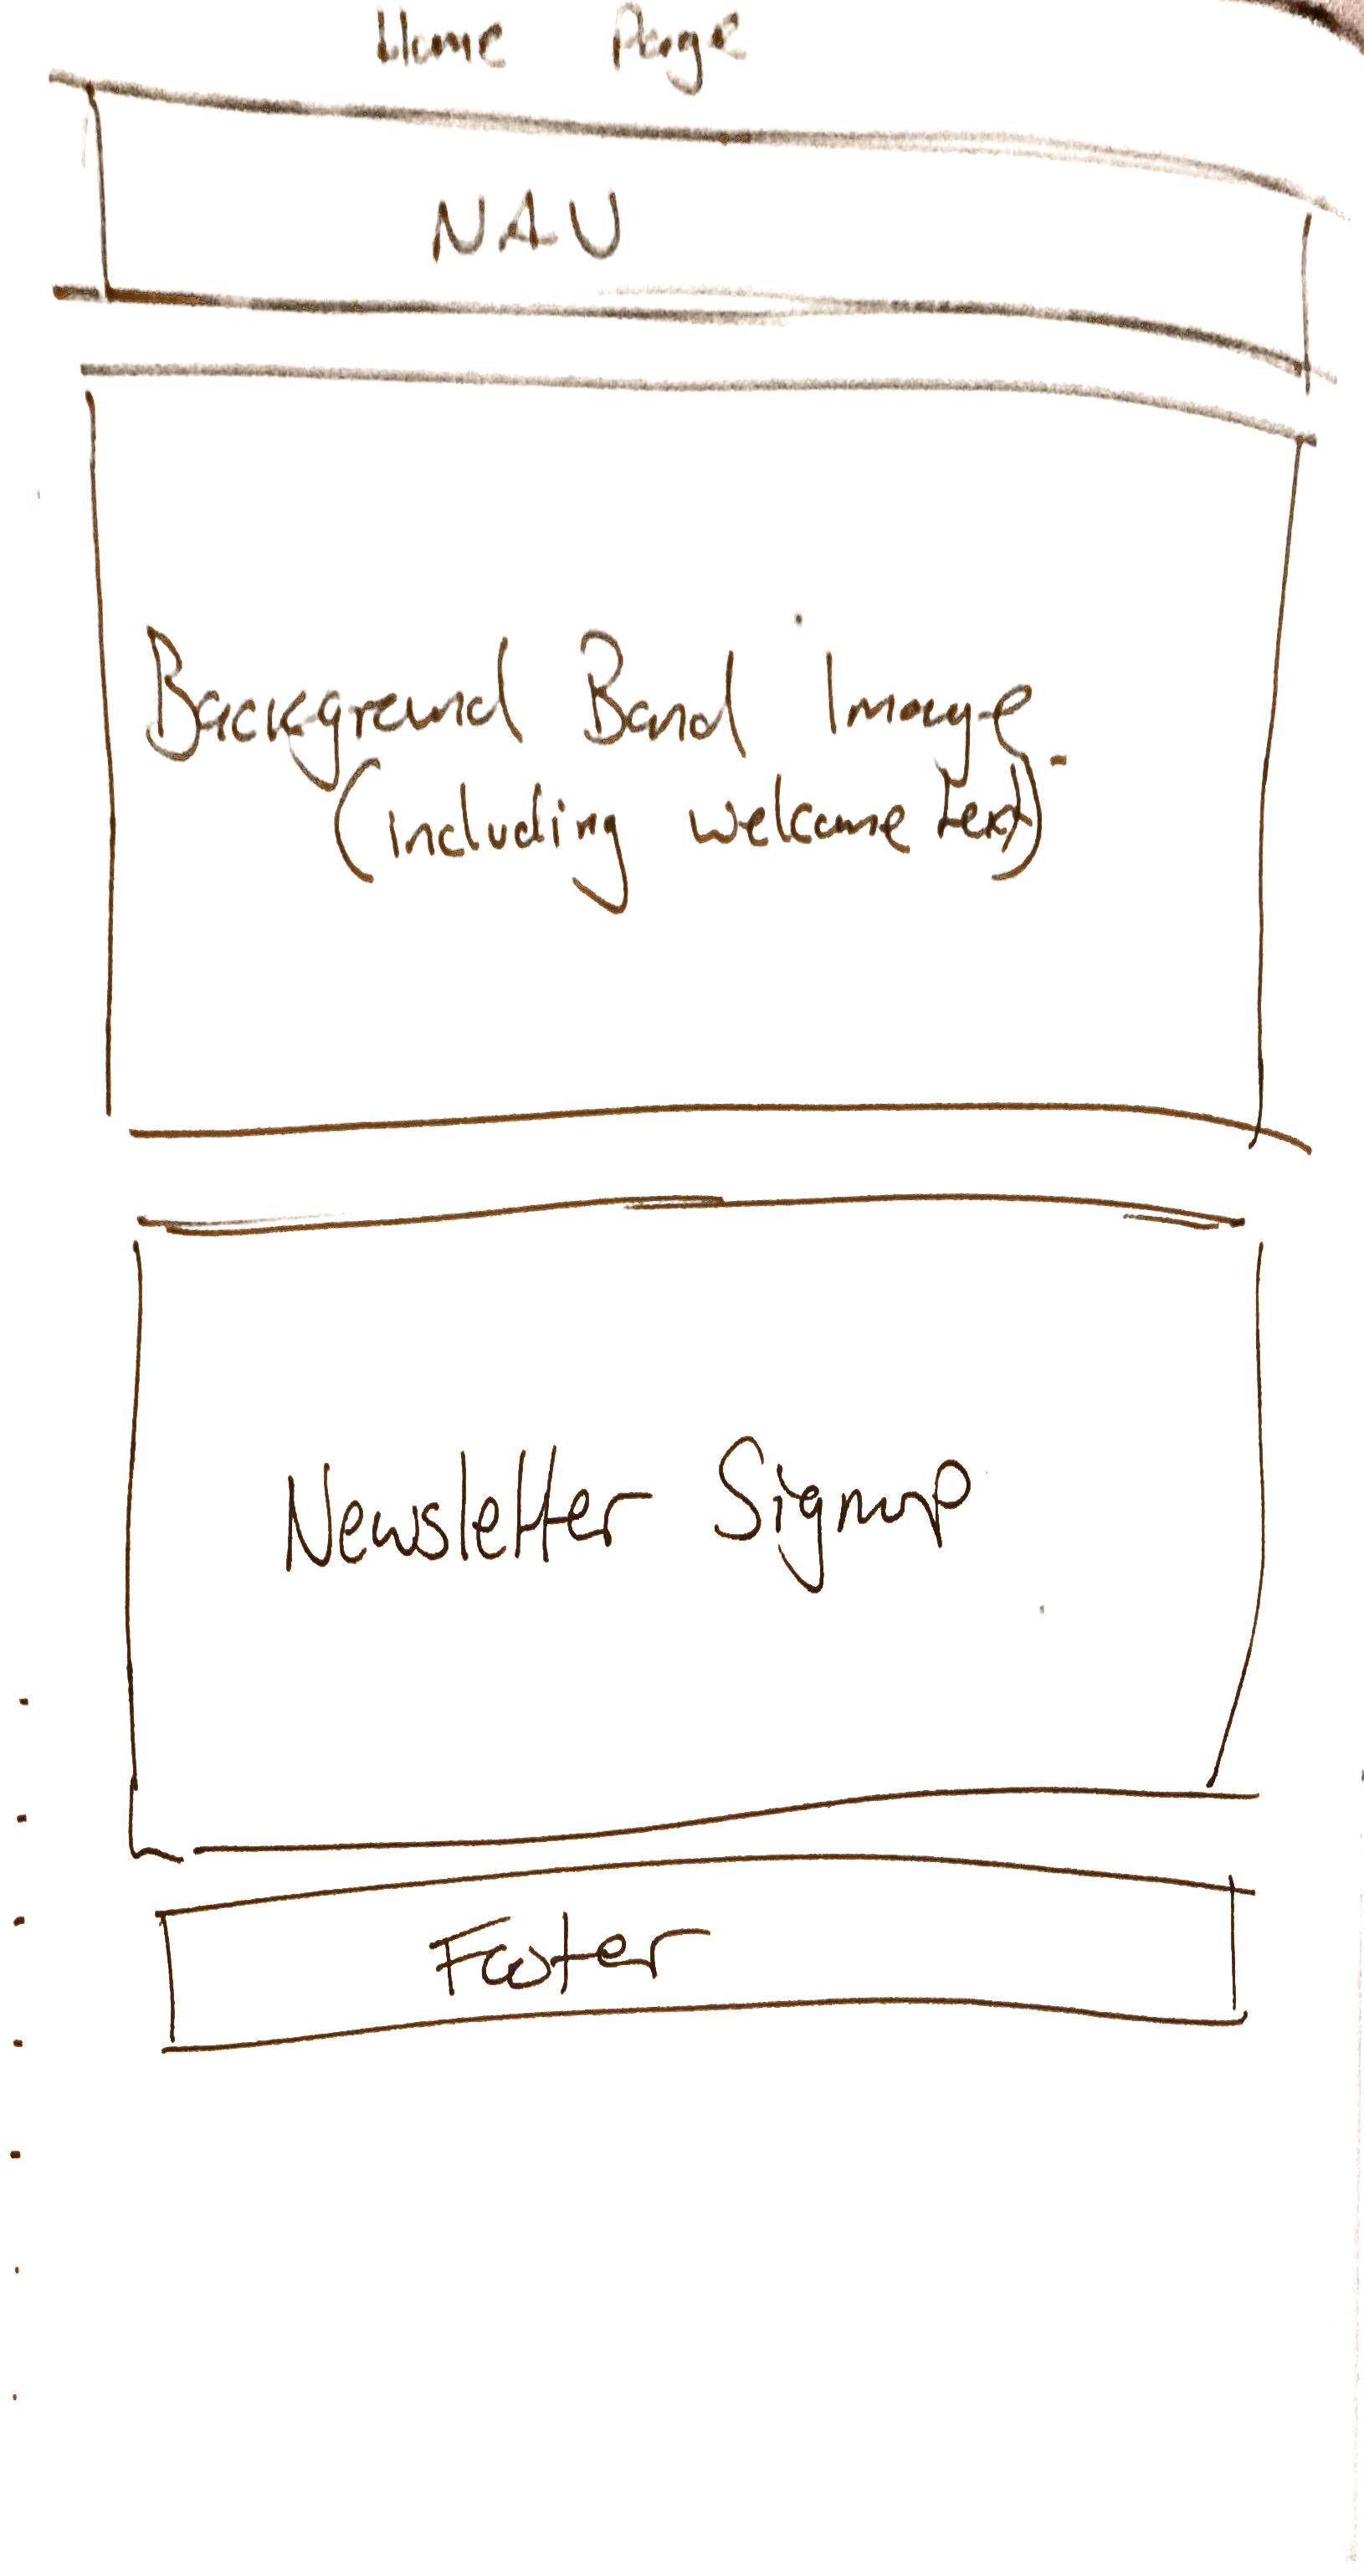 Home Page
NAV
Background Band Image
(including welcome text)
Newsletter Signup
Footer